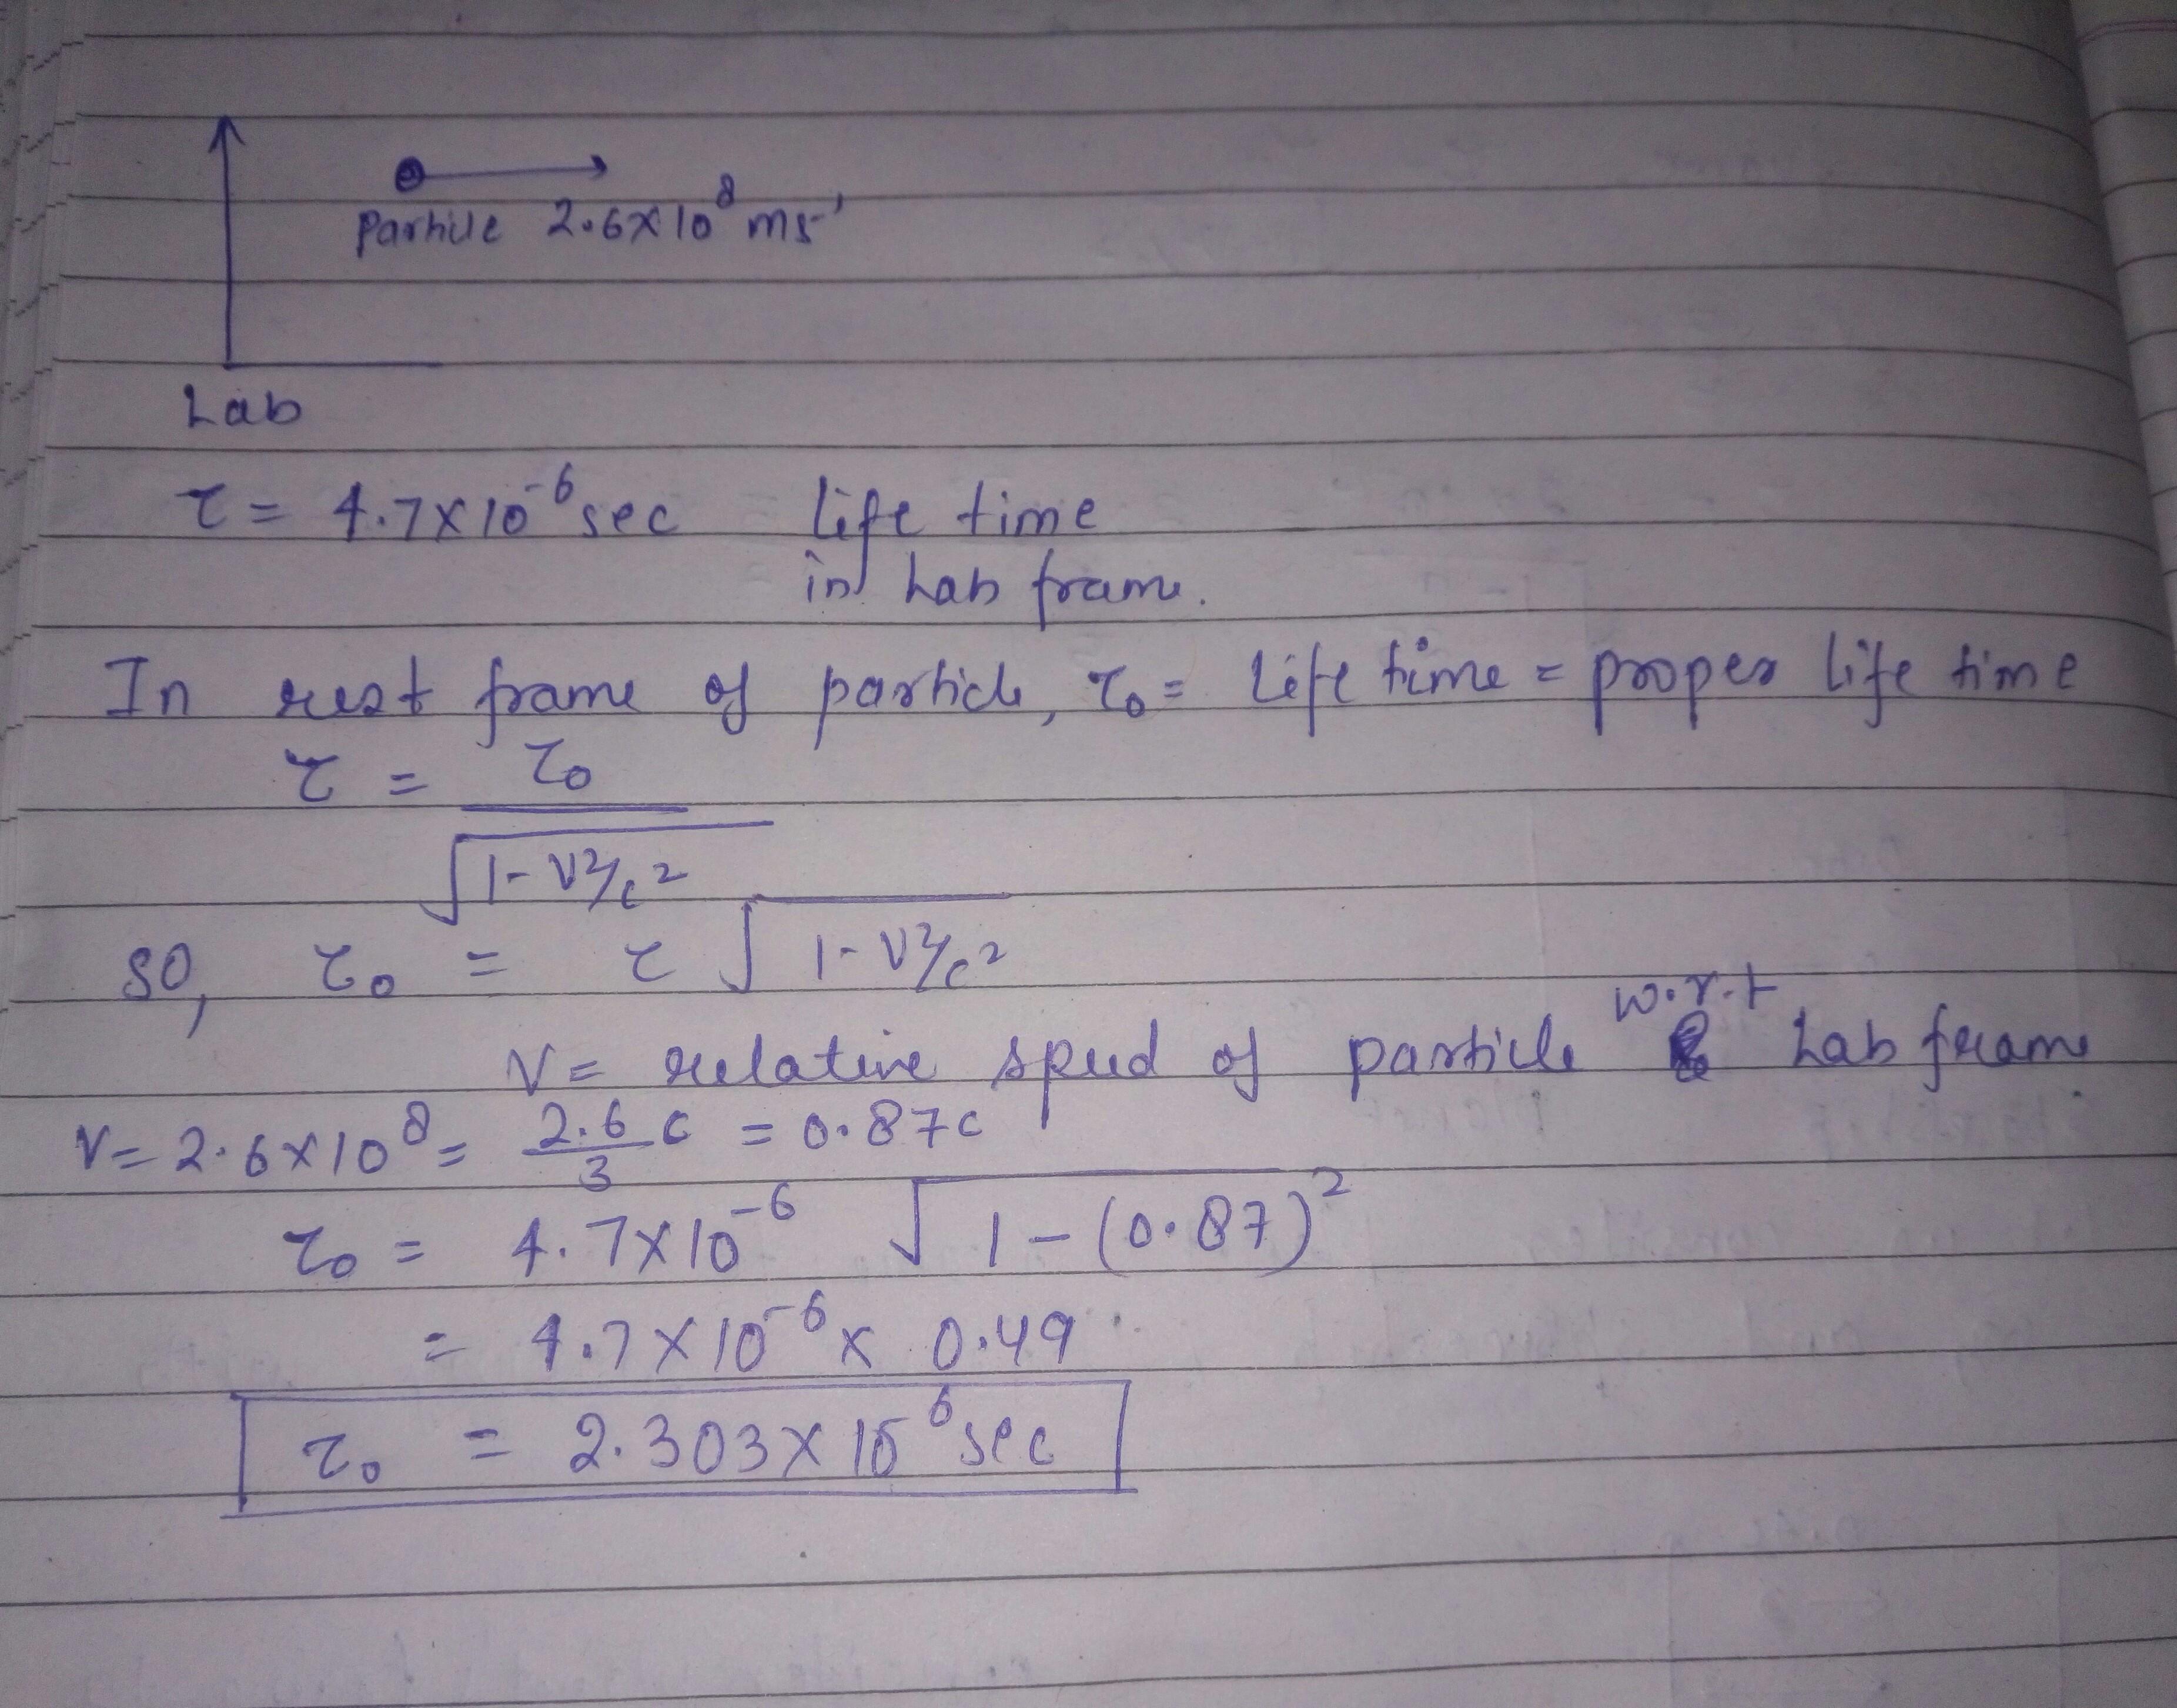 Particle 2.6×10⁸ ms⁻¹
Lab
τ = 4.7×10⁻⁶ sec life time
in Lab frame.
In rest frame of particle, τ₀ = Life time = proper life time
τ = τ₀ / √(1-V²/c²)
so, τ₀ = τ √(1-V²/c²)
V = relative speed of particle w.r.t Lab frame
V = 2.6×10⁸ = 2.6/3 c = 0.87c
τ₀ = 4.7×10⁻⁶ √(1-(0.87)²)
= 4.7×10⁻⁶ × 0.49
τ₀ = 2.303×10⁻⁶ sec